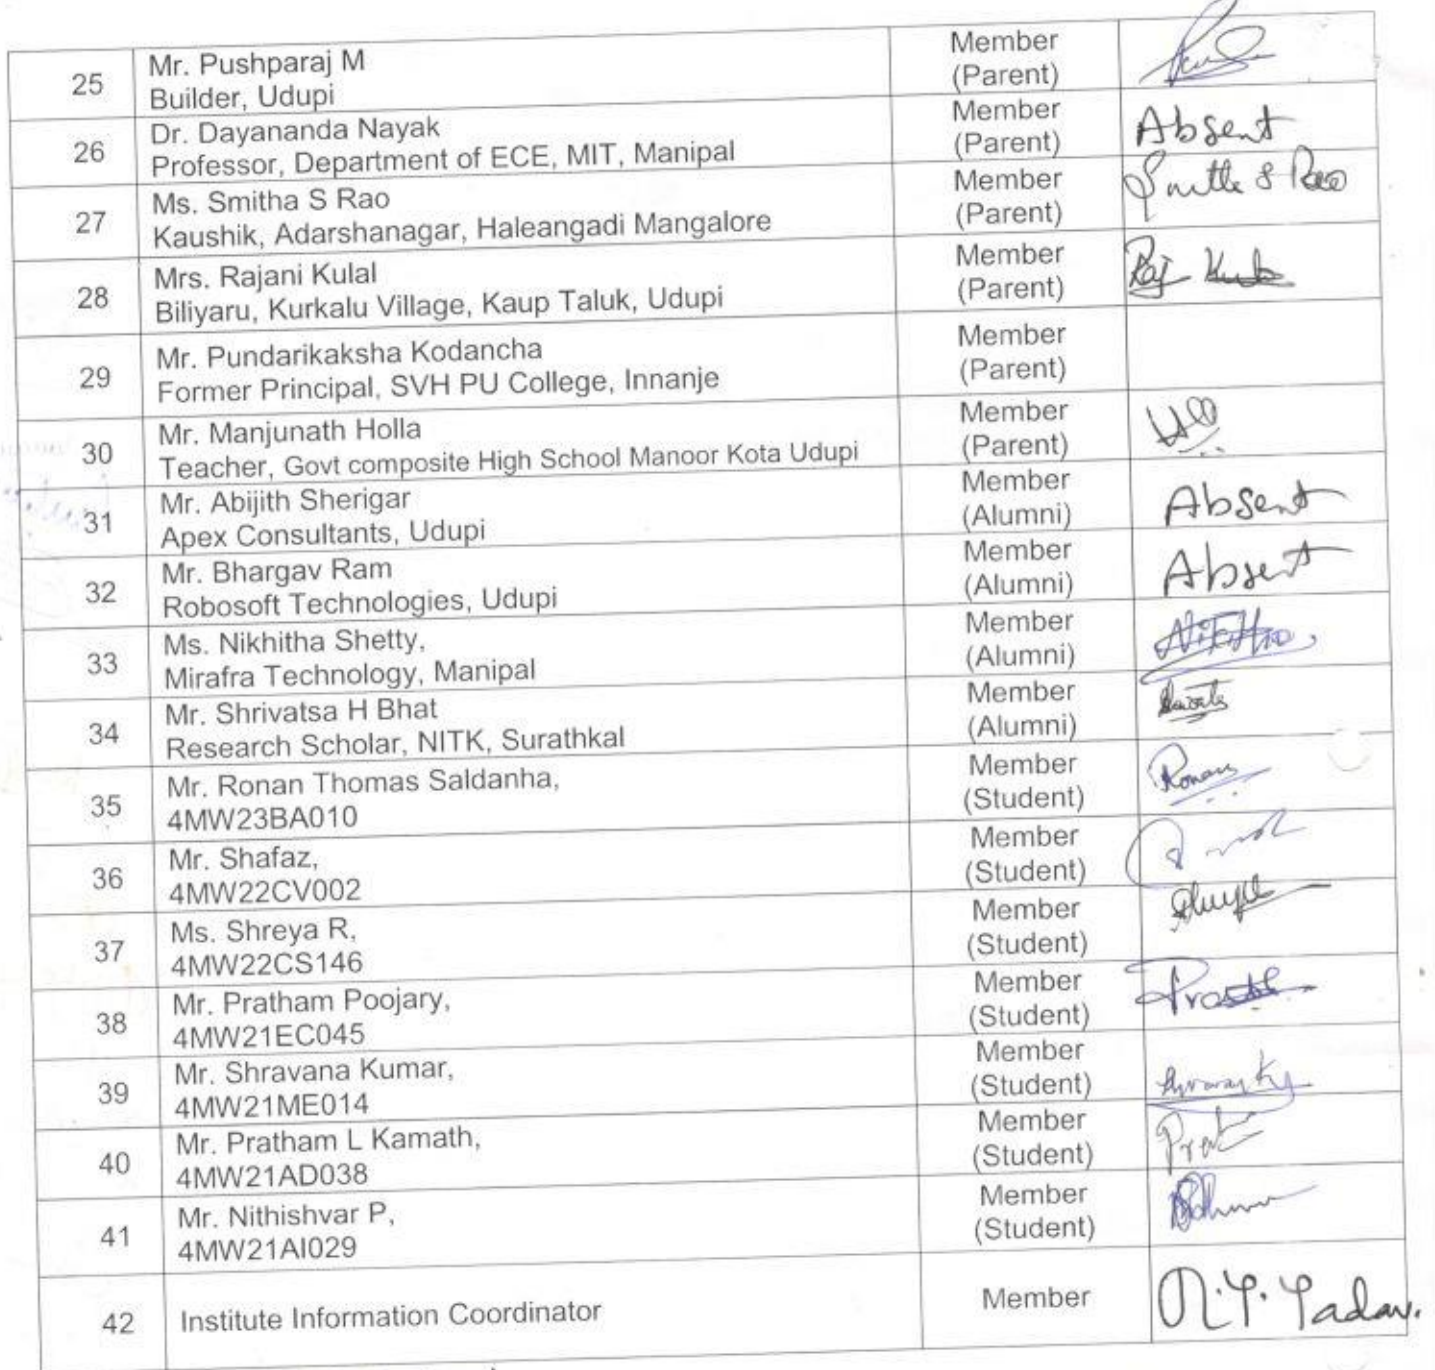 25
Mr. Pushparaj M
Builder, Udupi
Member
(Parent)
26
Dr. Dayananda Nayak
Professor, Department of ECE, MIT, Manipal
Member
(Parent)
Absent
27
Ms. Smitha S Rao
Kaushik, Adarshanagar, Haleangadi Mangalore
Member
(Parent)
28
Mrs. Rajani Kulal
Biliyaru, Kurkalu Village, Kaup Taluk, Udupi
Member
(Parent)
29
Mr. Pundarikaksha Kodancha
Former Principal, SVH PU College, Innanje
Member
(Parent)
30
Mr. Manjunath Holla
Teacher, Govt composite High School Manoor Kota Udupi
Member
(Parent)
31
Mr. Abijith Sherigar
Apex Consultants, Udupi
Member
(Alumni)
Absent
32
Mr. Bhargav Ram
Robosoft Technologies, Udupi
Member
(Alumni)
Absent
33
Ms. Nikhitha Shetty,
Mirafra Technology, Manipal
Member
(Alumni)
34
Mr. Shrivatsa H Bhat
Research Scholar, NITK, Surathkal
Member
(Alumni)
35
Mr. Ronan Thomas Saldanha,
4MW23BA010
Member
(Student)
Ronan
36
Mr. Shafaz,
4MW22CV002
Member
(Student)
37
Ms. Shreya R,
4MW22CS146
Member
(Student)
38
Mr. Pratham Poojary,
4MW21EC045
Member
(Student)
39
Mr. Shravana Kumar,
4MW21ME014
Member
(Student)
40
Mr. Pratham L Kamath,
4MW21AD038
Member
(Student)
41
Mr. Nithishvar P,
4MW21AI029
Member
(Student)
42
Institute Information Coordinator
Member
Yadav.